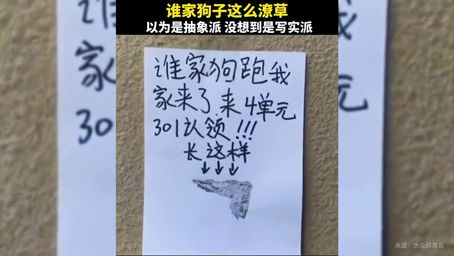 谁家狗子这么潦草
以为是抽象派 没想到是写实派
谁家狗跑我
家来了.来4单元
301认领!!!
长这样
↓↓↓
来源:大众网青岛